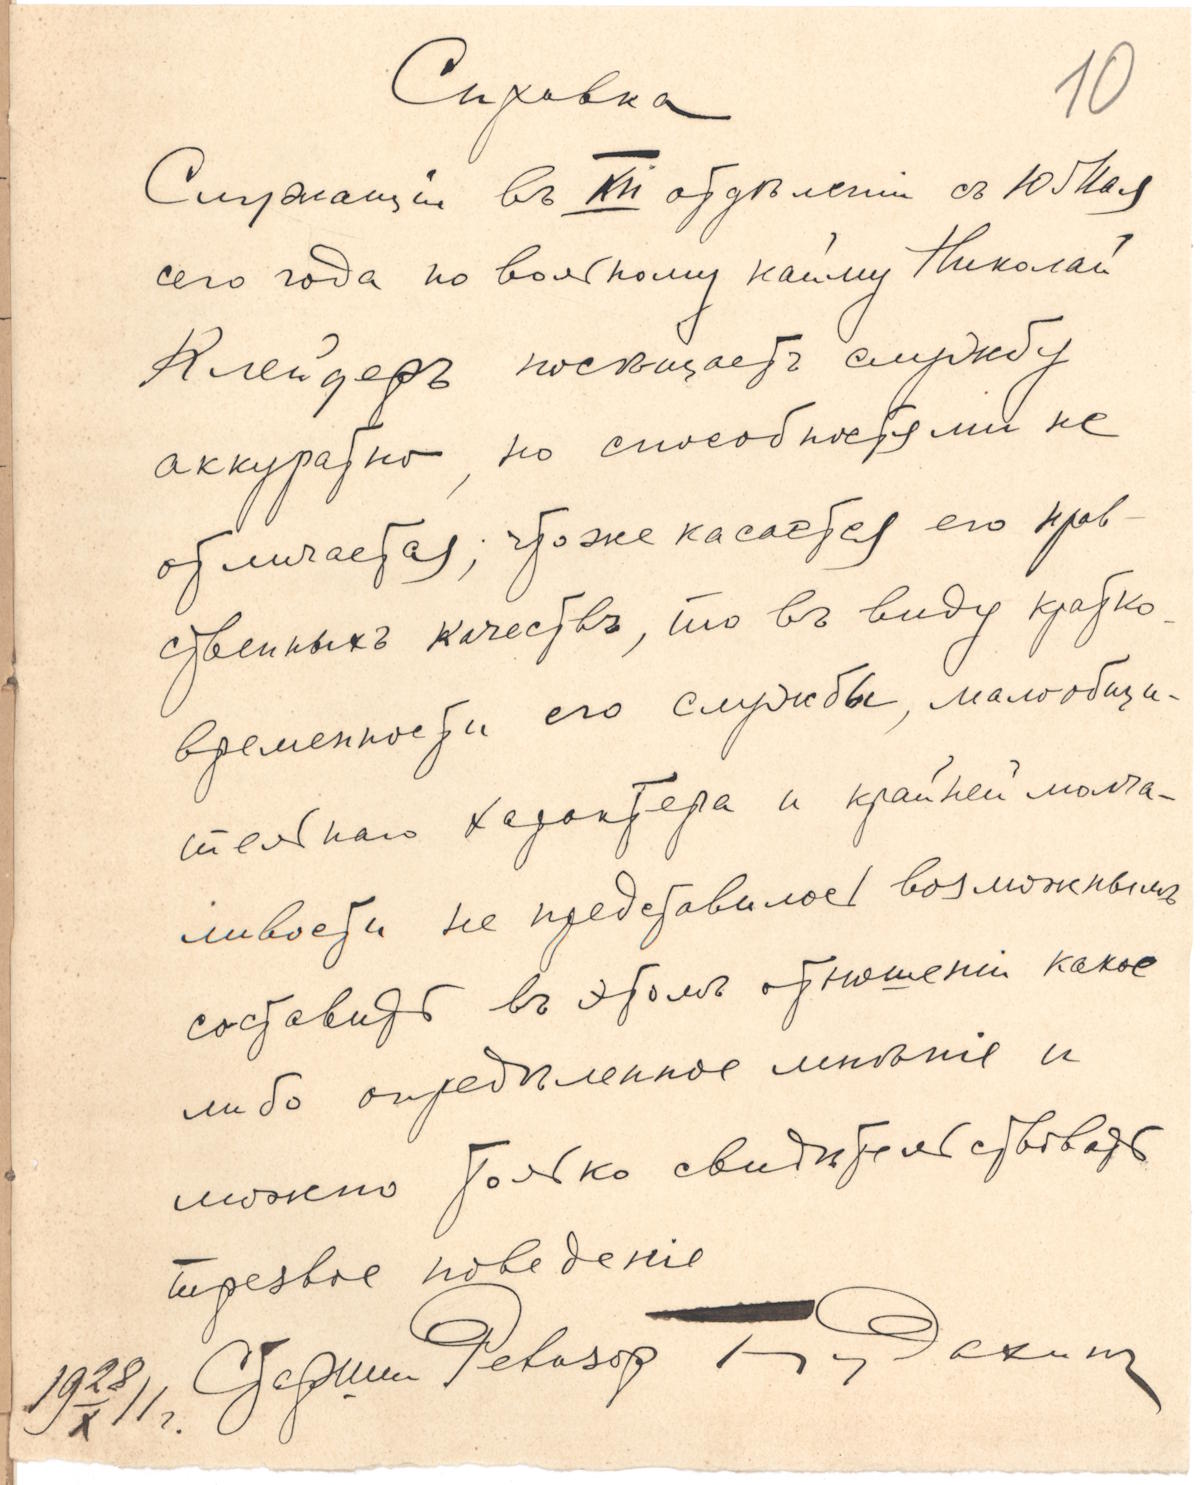 Справка
10
Служащій въ XII отдѣленіи съ 10 Мая
сего года по вольному найму Николай
Клейдеръ посѣщаетъ службу
аккуратно, но способностями не
отличается; что же касается его нрав-
ственныхъ качествъ, то въ виду кратко-
временности его службы, малообщи-
тельнаго характера и крайней молча-
ливости не представилось возможнымъ
составить въ этомъ отношеніи какое
либо опредѣленное мнѣніе и
можно только свидѣтельствовать
трезвое поведеніе
Старшій Ревизор
19 28/X 11 г.